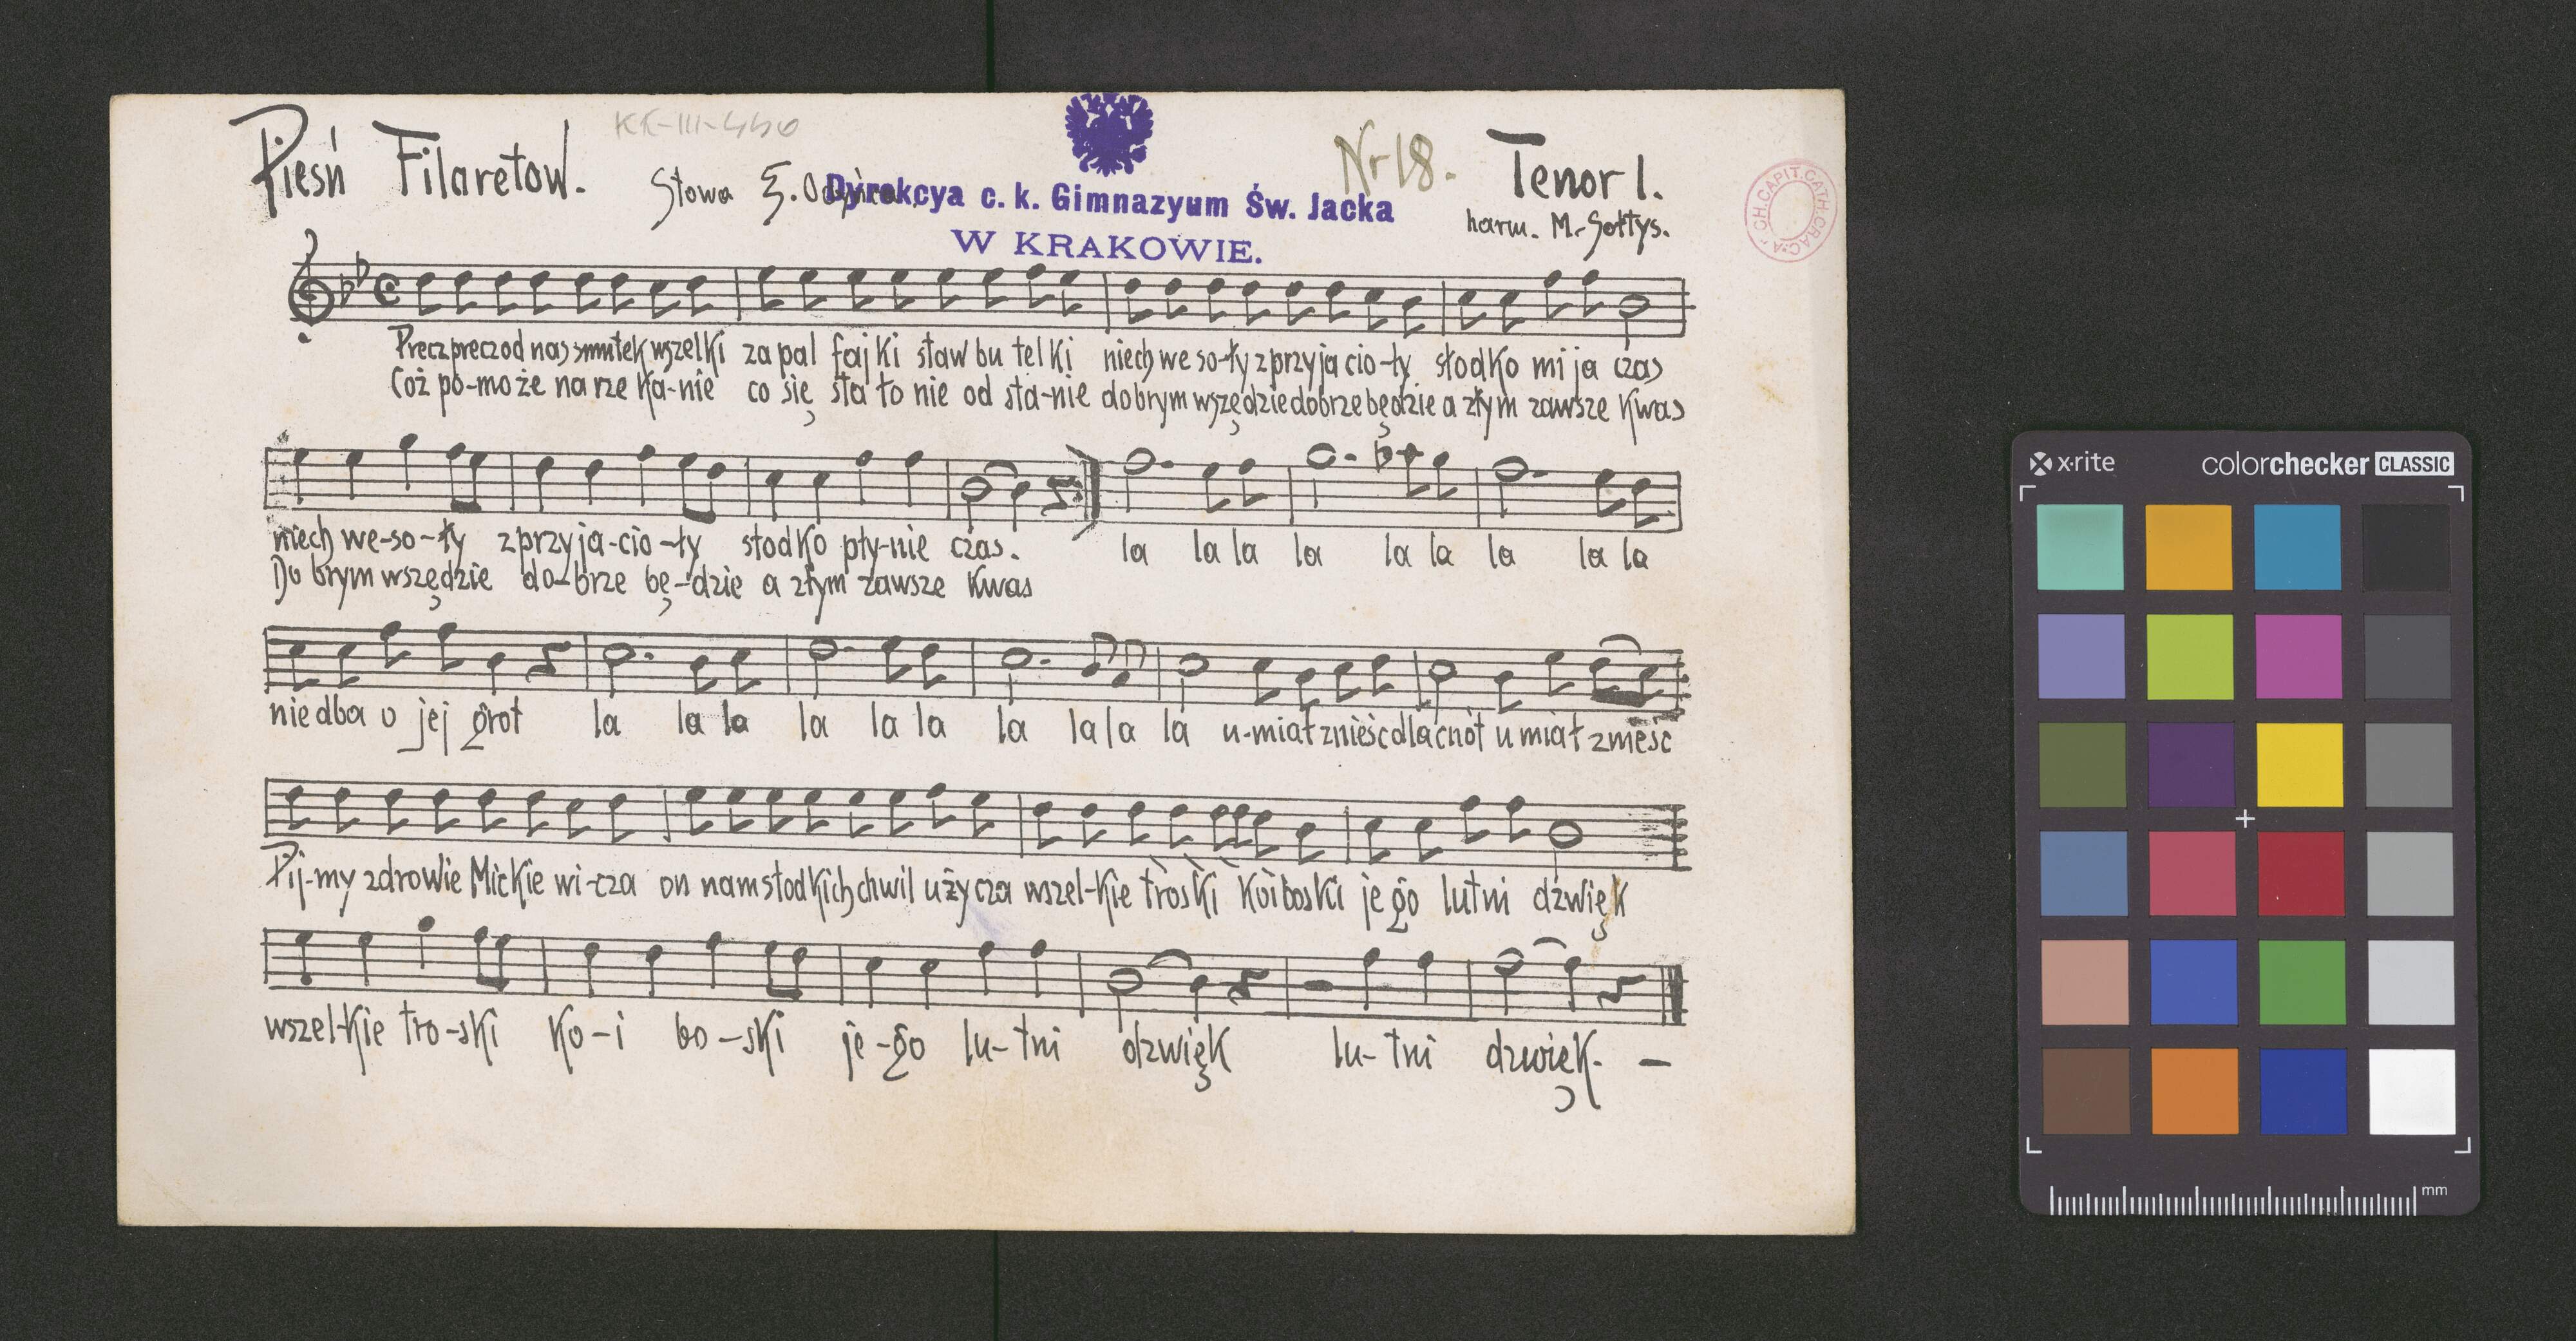 Pieśń Filaretow.
KK-III-450
Słowa E.
Dyrekcya c. k. Gimnazyum Św. Jacka
W KRAKOWIE.
Nr 18.
Tenor I.
harm. M. Sołtys.
CH.CAPIT.CATH.CRAC.
Precz precz od nas smutek wszelki za pal faj ki staw bu tel ki niech we so-ły z przy ja cio-ły słodko mi ja czas
Coż po-mo że na rze ka-nie co się sta ło nie od sta-nie dobrym wszędzie dobrze będzie a złym zawsze kwas
niech we-so-ły z przy ja-cio-ły słodko pły-nie czas. la la la la la la la la la
Do brym wszędzie do-brze bę-dzie a złym zawsze kwas
nie dba o jej grot la la la la la la la la la la u-miał znieść dla cnót u miał znieść
Pij-my zdrowie Mickie wi-cza on nam słodkich chwil uży cza wszel-kie troski koi boski je go lutni dźwięk
wszel-kie tro-ski ko-i bo-ski je-go lu-tni dzwięk lu-tni dzwięk. -
x·rite
colorchecker CLASSIC
mm